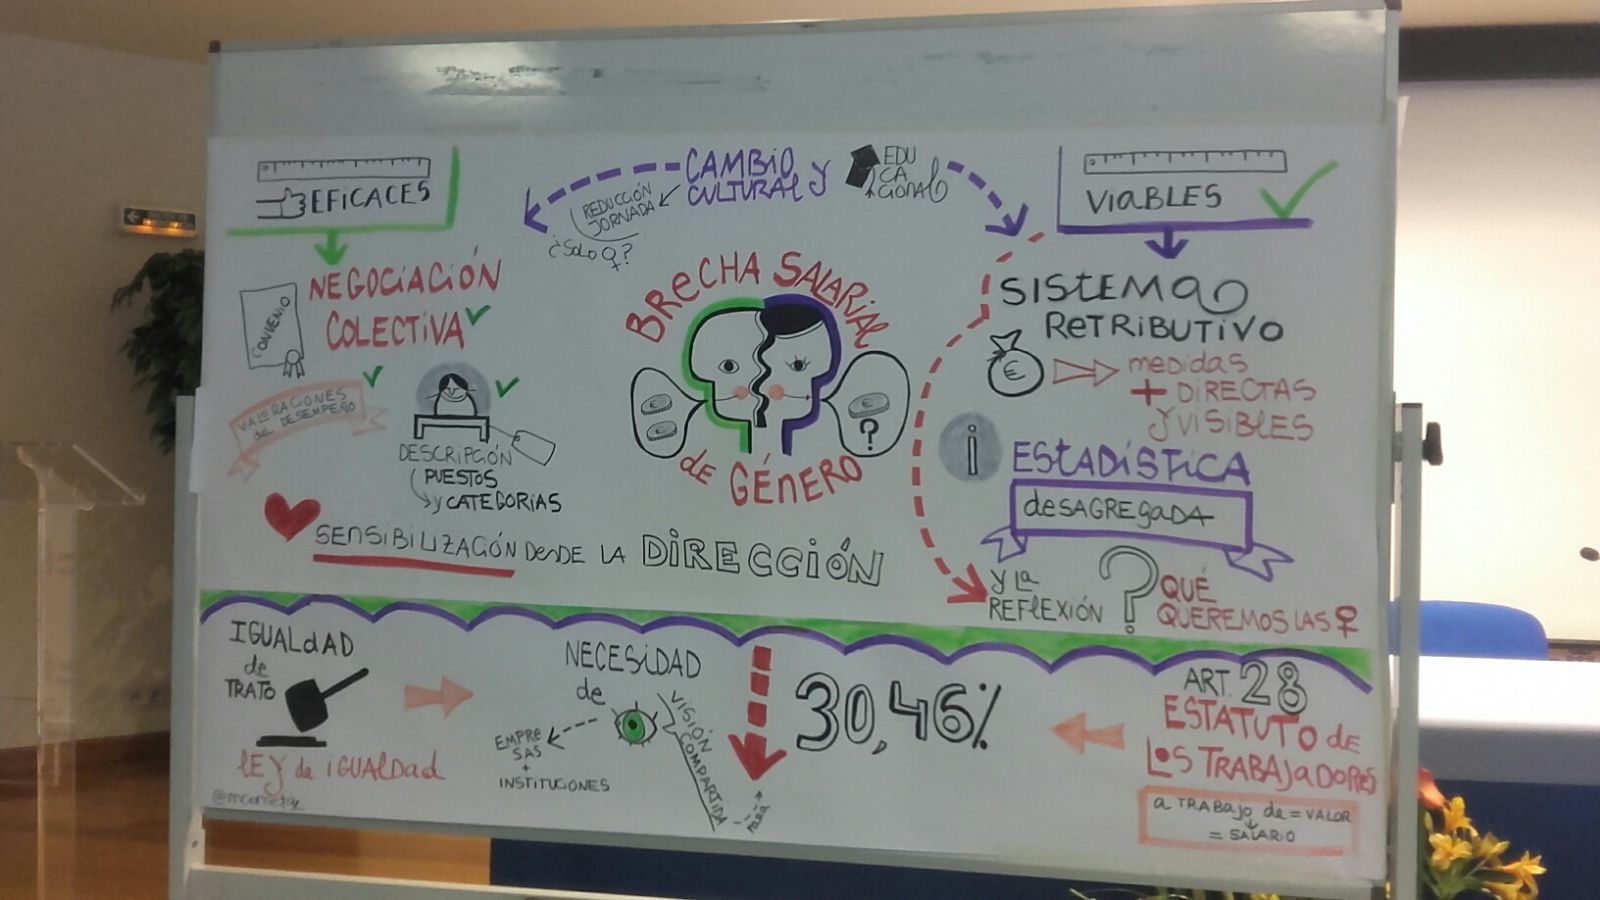 EFICACES
CAMBIO
CULTURAL Y
EDU
CA
CIONAL
REDUCCIÓN
JORNADA
¿SOLO ♀?
VIABLES
NEGOCIACIÓN
COLECTIVA
CONVENIO
VALORACIONES
del DESEMPEÑO
DESCRIPCIÓN
PUESTOS
Y CATEGORIAS
BRECHA SALARIAL
de GÉNERO
€
€
€
?
SISTEMA
RETRIBUTIVO
€
medidas
+ DIRECTAS
Y VISIBLES
i
ESTADÍSTICA
desAGREgadA
SENSIBILIZACIÓN DESDE LA DIRECCIÓN
Y LA
REFLEXIÓN
? QUÉ
QUEREMOS LAS ♀
IGUALdAD
de
TRATO
lEY de iGUAldad
NECESIDAD
de
VISIÓN
COMPARTIDA
EMPRE
SAS
+
INSTITUCIONES
PARA
30,46%
ART. 28
ESTATUTO de
LOS TRABAJADORES
a TRABAJO de = VALOR
= SALARIO